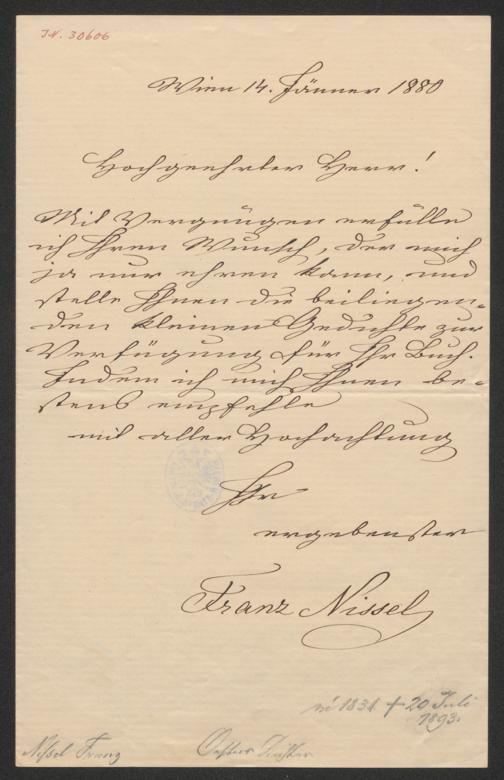 I.N. 30606
Wien 14. Jänner 1880
Hochgeehrter Herr!
Mit Vergnügen erfülle
ich Ihren Wunsch, der mich
ja nur ehren kann, und
stelle Ihnen die beiliegen-
den kleinen Gedichte zur
Verfügung für Ihr Buch.
Indem ich mich Ihnen be-
stens empfehle
mit aller Hochachtung
Ihr
ergebenster
Franz Nissel
1831 † 20 Juli
1893.
Nissel Franz
Dichter